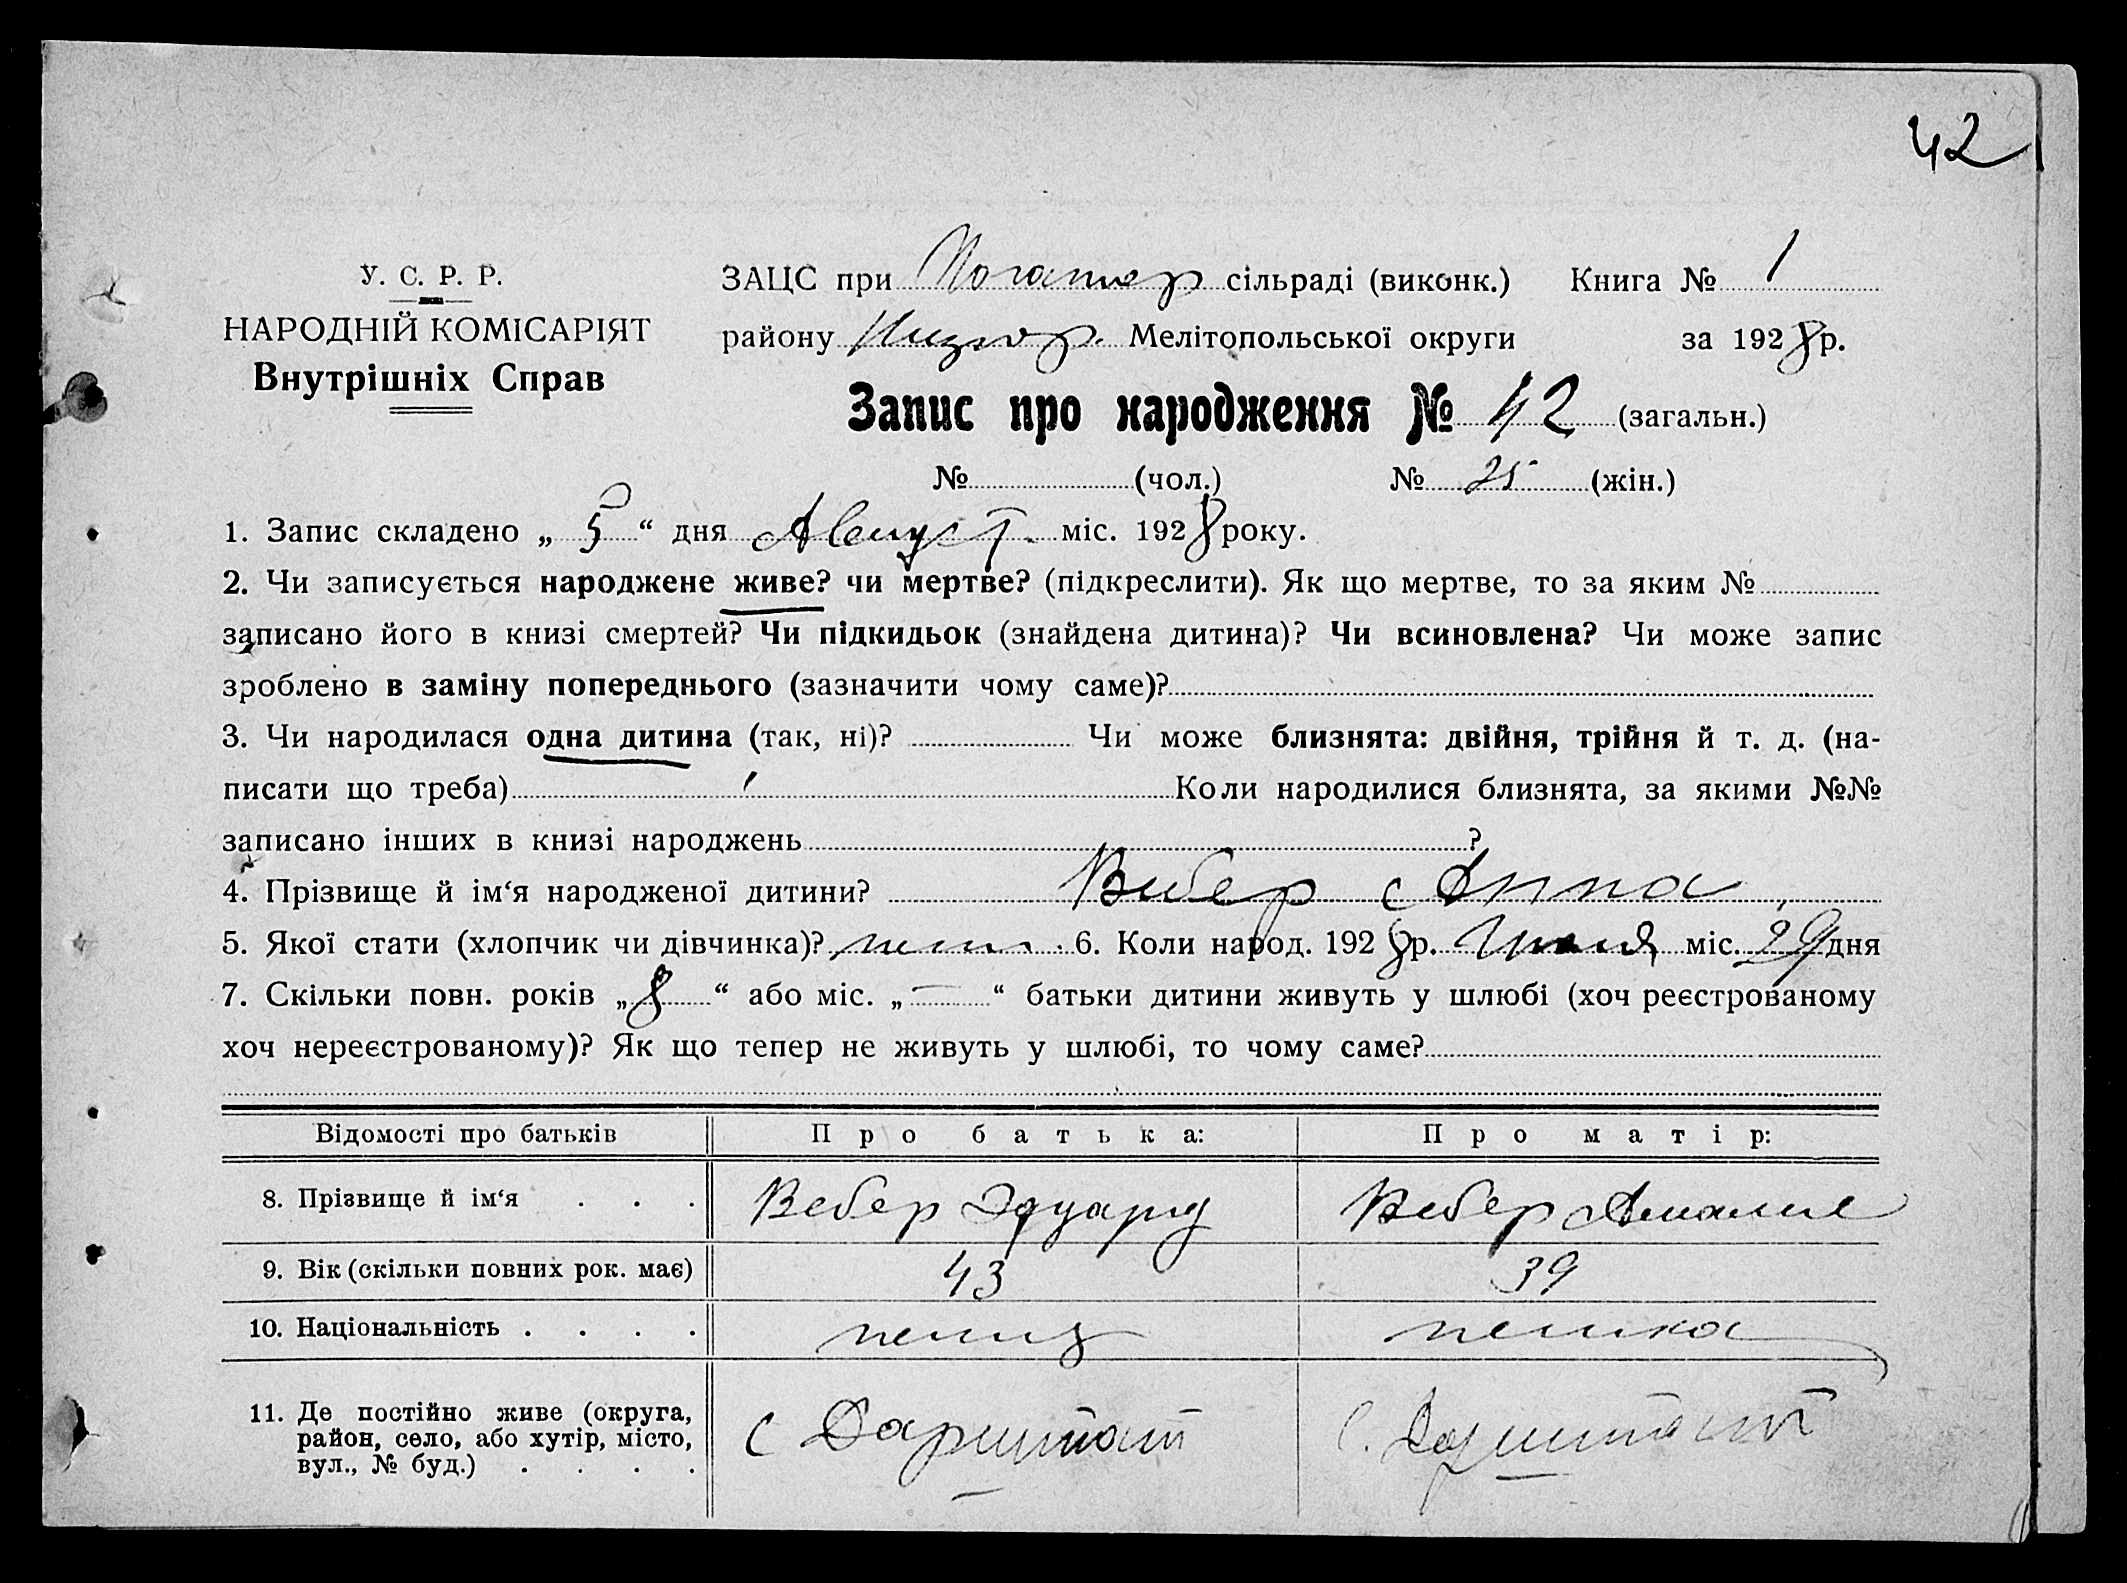 42
У. С. Р. Р.
НАРОДНІЙ КОМІСАРІЯТ
Внутрішніх Справ
ЗАЦС при сільраді (виконк.) Книга № 1
району Мелітопольської округи за 1928 р.
Запис про народження № 42 (загальн.)
№ (чол.) № 25 (жін.)
1. Запис складено „ 5 “ дня Август. міс. 1928 року.
2. Чи записується народжене живе? чи мертве? (підкреслити). Як що мертве, то за яким №
записано його в книзі смертей? Чи підкидьок (знайдена дитина)? Чи всиновлена? Чи може запис
зроблено в заміну попереднього (зазначити чому саме)?
3. Чи народилася одна дитина (так, ні)? Чи може близнята: двійня, трійня й т. д. (на-
писати що треба) Коли народилися близнята, за якими №№
записано інших в книзі народжень ?
4. Прізвище й ім‘я народженої дитини? Вебер Анна
5. Якої стати (хлопчик чи дівчинка)? 6. Коли народ. 1928 р. Июля міс. 29 дня
7. Скільки повн. років „ 8 “ або міс. „ — “ батьки дитини живуть у шлюбі (хоч реєстрованому
хоч нереєстрованому)? Як що тепер не живуть у шлюбі, то чому саме?
Відомості про батьків Про батька: Про матір:
8. Прізвище й ім‘я . . . Вебер Эдуард Вебер Амалие
9. Вік (скільки повних рок. має) 43 39
10. Національність . . . . немец немка
11. Де постійно живе (округа,
район, село, або хутір, місто,
вул., № буд.) . . . .
с Дармштат с. Дармштат